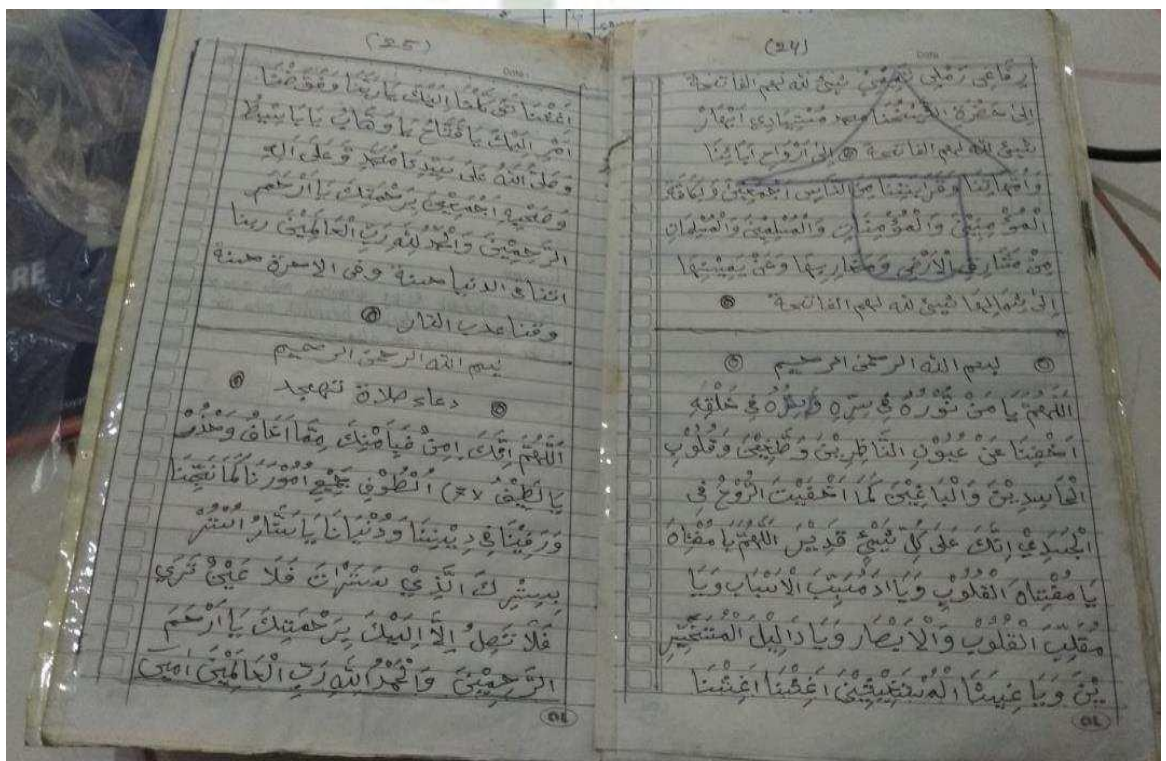 (24)
Date:
رِفَاعِى رَمْلِى شَيْئٌ لله لهم الفاتحة
اِلىٰ حَضْرَةِ
شَيْئٌ لله لهم الفاتحة اِلىٰ اَرْوَاحِ اٰبَائِنَا
وَاُمَّهَاتِنَا وَقَرَابَتِنَا مِنَ النَّاسِ اَجْمَعِيْنَ وَلِكَافَةِ
الْمُؤْمِنِيْنَ وَالْمُؤْمِنَاتِ وَالْمُسْلِمِيْنَ وَالْمُسْلِمَاتِ
مِنْ مَشَارِقِ الْاَرْضِ وَمَغَارِبِهَا وَمَنْ يَمِيْنِهَا
اِلىٰ شِمَالِهَا شَيْئٌ لله لهم الفاتحة
بسم الله الرحمن الرحيم
اَللّٰهُمَّ يَا مَنْ نُوْرُهُ فِي سِرِّهِ وَسِرُّهُ فِي خَلْقِهِ
اَخْفِنَا عَنْ عُيُوْنِ النَّاظِرِيْنَ وَقُلُوْبِ
الْحَاسِدِيْنَ وَالْبَاغِيْنَ كَمَا اَخْفَيْتَ الرُّوْحَ فِى
الْجَسَدِ اِنَّكَ عَلَى كُلِّ شَيْئٍ قَدِيْر اَللّٰهُمَّ يَا
يَا الْقُلُوْبِ وَيَا مُسَبِّبَ الْاَسْبَابِ وَيَا
مُقَلِّبَ الْقُلُوْبِ وَالْاَبْصَار وَيَا دَلِيْلَ الْمُتَحَيِّرِ
يْنَ وَيَا اَغِثْنَا اَغِثْنَا
(25)
Date:
اَغِثْنَا اِلَيْكَ يَا رَبَّنَا وَفَوَّضْنَا
اَمْرِ اِلَيْكَ يَا فَتَّاحُ يَا وَهَّابُ يَا بَاسِطُ
وَصَلَّى اللهُ عَلَى سَيِّدِنَا مُحَمَّدٍ وَّعَلَى اٰلِهِ
وَصَحْبِهِ اَجْمَعِيْنَ بِرَحْمَتِكَ يَا اَرْحَمَ
الرَّحِمِيْنَ وَالْحَمْدُ لِلّٰهِ رَبِّ الْعَالَمِيْنَ ربنا
اتنا فى الدنيا حسنة وفى الاخرة حسنة
وقنا عذب النار
بسم الله الرحمن الرحيم
دعاء صلاة تهجد
اَللّٰهُمَّ اِنَّكَ اٰمِنْ مِمَّا اَخَافُ وَحْذَرُ
يَا لَطِيْفُ اُلْطُوْفِ جَمِيْعِ اُمُوْرِنَا كَمَا
فِى دِيْنِنَا وَدُنْيَانَا يَا سَتَّارُ اسْتُرْ
بِسِتْرِكَ الَّذِيْ سَتَرْتَ فَلَا عَيْنْ تَرٰي
فَلَا تَصِلُ اِلَّا اِلَيْكَ بِرَحْمَتِكَ يَا اَرْحَمَ
الرَّحِمِيْنَ وَالْحَمْدُ لِلّٰهِ رَبِّ الْعَالَمِيْنَ اٰمِيْنَ